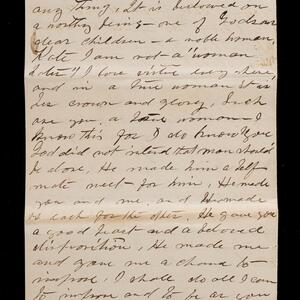 any thing, It is bestowed on
a worthy being - one of Gods own
dear children - a noble woman,
Kate I am not a "woman
hater" I love virtue every where,
and in a true woman it is
her crown and glory, Such
are you, a true woman - I
know this for I do know you
God did not intend that man should
be alone, He made him a help-
mate meet - for him, He made
you and me, and He made
us each for the other, He gave you
a good heart and a beloved
disposition, He made me
and gave me a chance to
improve, I shall do all I can
to improve and to be as you